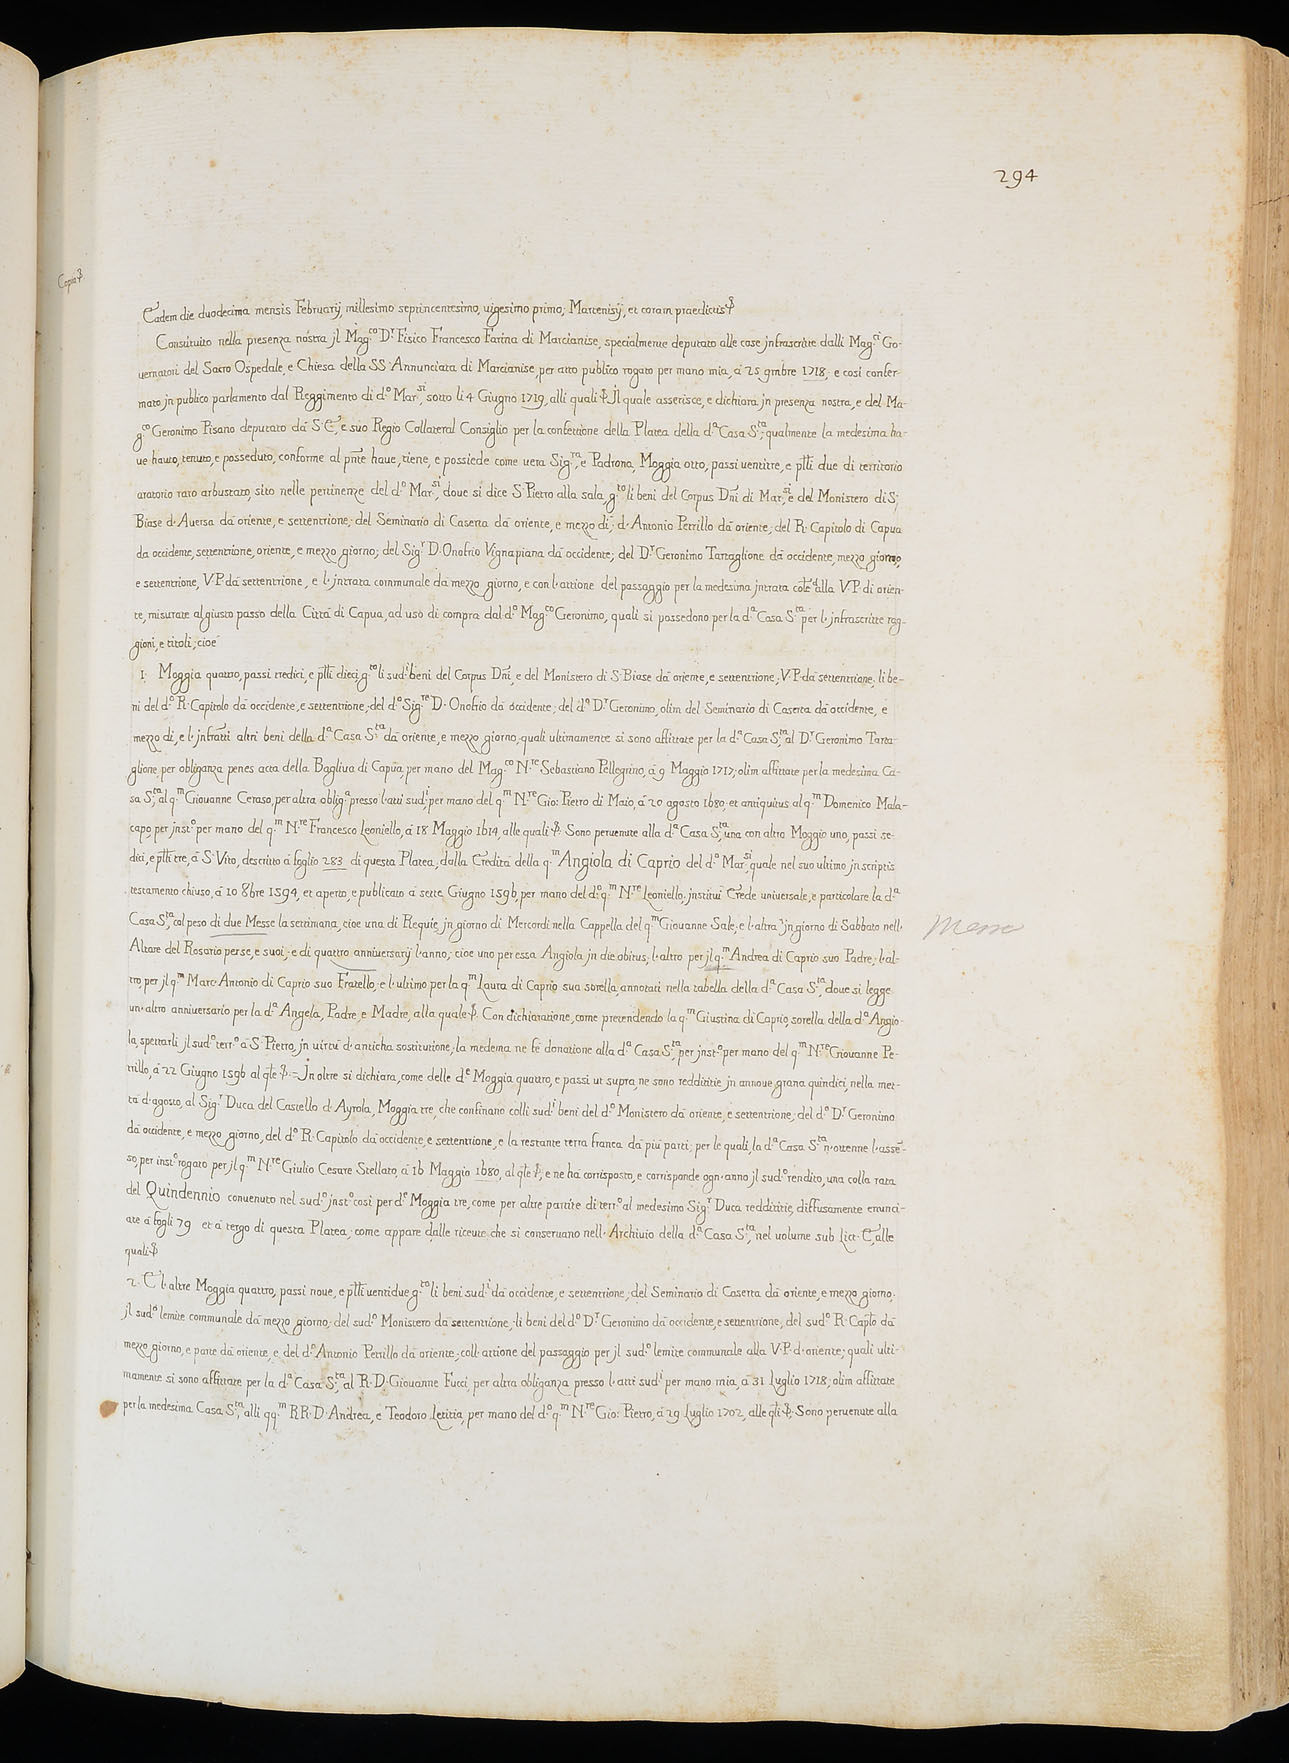 294
Copia
Eadem die duodecima mensis Februarij millesimo septincentesimo, uigesimo primo, Martenisij, et coram praedictis
Constituito nella presenza nostra jl Mag.co D.r Fisico Francesco Farina di Marcianise, specialmente deputato alle cose jnfrascritte dalli Mag.ci Go-
uernatori del Sacro Ospedale, e Chiesa della SS. Annunciata di Marcianise, per atto publico rogato per mano mia, à 25 9mbre 1718, e così confer-
mato jn publico parlamento dal Reggimento di d.o Mar.si, sotto li 4 Giugno 1719, alli quali Jl quale asserisce, e dichiara jn presenza nostra, e del Ma-
g.co Geronimo Pisano deputato dà S.E., e suo Regio Collateral Consiglio per la confettione della Platea della d.a Casa S.ta, qualmente la medesima ha-
ue hauto, tenuto, e posseduto, conforme al pnte haue, tiene, e possiede come uera Sig.ra, e Padrona, Moggia otto, passi uentitre, e ptti due di territorio
aratorio raro arbustato, sito nelle pertinenze del d.o Mar.si, doue si dice S. Pietro alla sala, g.to li beni del Corpus Dni di Mar.si, e del Monistero di S.
Biase d'Auersa dà oriente, e settentrione; del Seminario di Caserta dà oriente, e mezzo di; d'Antonio Petrillo dà oriente; del R. Capitolo di Capua
da occidente, settentrione, oriente, e mezzo giorno; del Sig.r D. Onofrio Vignapiana dà occidente; del D.r Geronimo Tartaglione dà occidente, mezzo giorno,
e settentrione, V.P. dà settentrione, e l'jntrata communale dà mezzo giorno, e con l'attione del passaggio per la medesima jntrata alla V.P. di orien-
te, misurate al giusto passo della Città di Capua, ad uso di compra dal d.o Mag.co Geronimo, quali si possedono per la d.a Casa S.ta per l'jnfrascritte rag-
gioni, e titoli, cioè
1. Moggia quattro, passi tredici, e ptti dieci, g.to li sud.i beni del Corpus Dni, e del Monistero di S. Biase dà oriente, e settentrione; V.P. dà settentrione; li be-
ni del d.o R. Capitolo dà occidente, e settentrione; del d.o Sig.re D. Onofrio dà occidente; del d.o D.r Geronimo, olim del Seminario di Caserta dà occidente, e
mezzo di, e l'jnfratti altri beni della d.a Casa S.ta dà oriente, e mezzo giorno, quali ultimamente si sono affittate per la d.a Casa S.ta al D.r Geronimo Tarta-
glione, per obliganza penes acta della Bagliua di Capua, per mano del Mag.co N.re Sebastiano Pellegrino, à 9 Maggio 1717; olim affittate per la medesima Ca-
sa S.ta al q.m Giouanne Ceraso, per altra oblig.a presso l'atti sud.i, per mano del q.m N.re Gio: Pietro di Maio, à 20 agosto 1680, et antiquitus al q.m Domenico Mala-
capo, per jnst.o per mano del q.m N.re Francesco Leoniello, à 18 Maggio 1614, alle quali Sono peruenute alla d.a Casa S.ta, una con altro Moggio uno, passi se-
dici, e ptti tre, à S. Vito, descritto à foglio 283 di questa Platea, dalla Eredità della q.m Angiola di Caprio del d.o Mar.si, quale nel suo ultimo jn scriptis
testamento chiuso, à 10 8bre 1594, et aperto, e publicato à sette Giugno 1596, per mano del d.o q.m N.re Leoniello, jnstituì Erede uniuersale, e particolare la d.a
Casa S.ta, col peso di due Messe la settimana, cioè una di Requie, jn giorno di Mercordì nella Cappella del q.m Giouanne Sale, e l'altra jn giorno di Sabbato nell'
Messe
Altare del Rosario per se, e suoi, e di quattro anniuersarij l'anno; cioè uno per essa Angiola jn die obitus, l'altro per jl q.m Andrea di Caprio suo Padre, l'al-
tro, per jl q.m Marc'Antonio di Caprio suo Fratello, e l'ultimo per la q.m Laura di Caprio sua sorella, annotati nella tabella della d.a Casa S.ta, doue si legge
un'altro anniuersario per la d.a Angela, Padre, e Madre, alla quale Con dichiaratione, come pretendendo la q.m Giustina di Caprio, sorella della d.a Angio-
la, spettarli jl sud.o terr.o à S. Pietro, jn uirtù d'anticha sostitutione, la medema ne fè donatione alla d.a Casa S.ta, per jnst.o per mano del q.m N.re Giouanne Pe-
trillo, à 22 Giugno 1596 al qle Jn oltre si dichiara, come delle d.e Moggia quattro, e passi ut supra, ne sono redditizie jn annoue grana quindici, nella met-
tà d'agosto, al Sig.r Duca del Castello d'Ayrola, Moggia tre, che confinano colli sud.i beni del d.o Monistero dà oriente, e settentrione; del d.o D.r Geronimo
dà occidente, e mezzo giorno, del d.o R. Capitolo dà occidente, e settentrione, e la restante terra franca dà più parti; per le quali, la d.a Casa S.ta n'ottenne l'assen-
so, per inst.o rogato per jl q.m N.re Giulio Cesare Stellato, à 16 Maggio 1680, al qle, e ne hà corrisposto, e corrisponde ogn'anno jl sud.o rendito, una colla rata
del Quindennio conuenuto nel sud.o jnst.o così per d.e Moggia tre, come per altre partite di terr.o al medesimo Sig.r Duca redditizie, diffusamente enunci-
ate à fogli 79 et à tergo di questa Platea; come appare dalle riceute che si conseruano nell'Archiuio della d.a Casa S.ta, nel uolume sub Litt. E, alle
quali
2. E l'altre Moggia quattro, passi noue, e ptti uentidue g.to li beni sud.i dà occidente, e settentrione; del Seminario di Caserta dà oriente, e mezzo giorno;
jl sud.o lemite communale dà mezzo giorno; del sud.o Monistero dà settentrione, li beni del d.o D.r Geronimo dà occidente, e settentrione; del sud.o R. Caplo dà
mezzo giorno, e parte dà oriente, e del d.o Antonio Petrillo dà oriente; coll'attione del passaggio per jl sud.o lemite communale alla V.P. d'oriente; quali ulti-
mamente si sono affittate per la d.a Casa S.ta, al R. D. Giouanne Fucci, per altra obliganza presso l'atti sud.i per mano mia, à 31 Luglio 1718; olim affittate
per la medesima Casa S.ta, alli qq.m RR. D. Andrea, e Teodoro Letitia, per mano del d.o q.m N.re Gio: Pietro, à 29 Luglio 1702, alle qli Sono peruenute alla